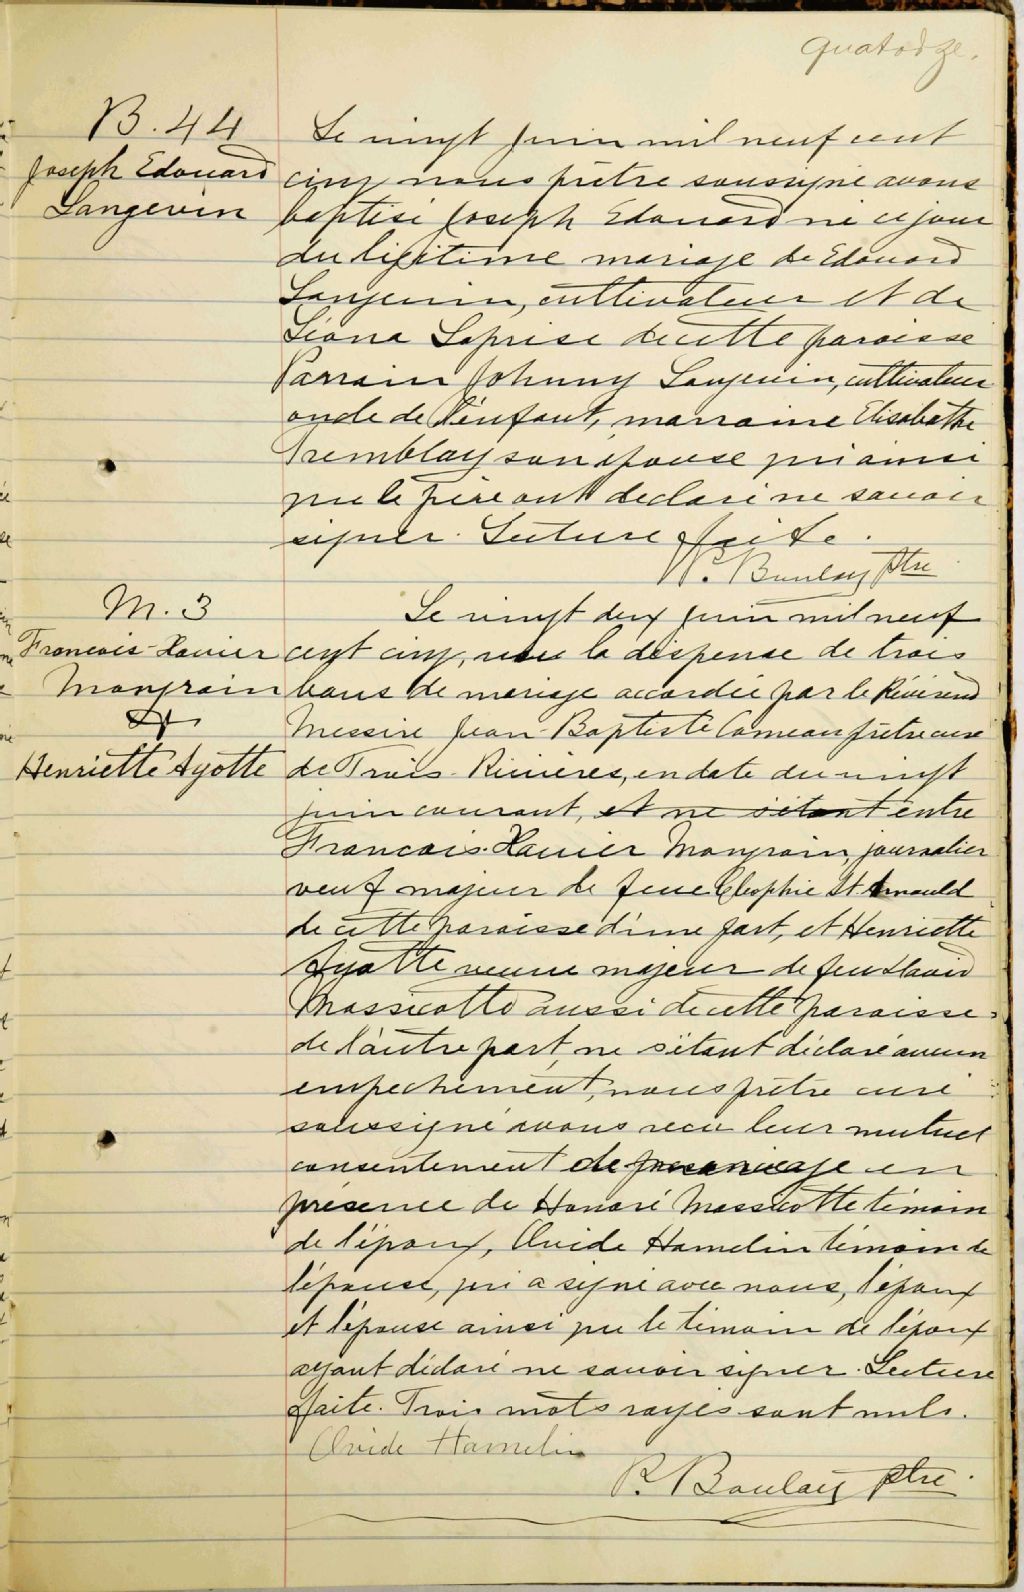 quatorze.
B. 44
Joseph Edouard
Langevin
Le vingt juin mil neuf cent
cinq nous prêtre soussigné avons
baptisé Joseph Edouard né ce jour
du légitime mariage de Edouard
Langevin, cultivateur et de
Léona Laprise de cette paroisse
Parrain Johnny Langevin, cultivateur
oncle de l'enfant, marraine Elisabethe
Tremblay son épouse qui ainsi
que le père ont déclaré ne savoir
signer. Lecture faite.
P. Boulay Ptre
M. 3
Francois-Xavier
Mongrain
&
Henriette Ayotte
Le vingt deux juin mil neuf
cent cinq, vu la dispense de trois
bans de mariage accordée par le Révérend
Messire Jean-Baptiste Comeau prêtre curé
de Trois-Rivières, en date du vingt
juin courant, et ne s'étant entre
Francois-Xavier Mongrain, journalier
veuf majeur de feue Cléophie St. Arnauld
de cette paroisse d'une part, et Henriette
Ayotte veuve majeur de feu David
Massicotte aussi de cette paroisse
de l'autre part, ne s'étant déclaré aucun
empechement, nous prêtre curé
soussigné avons recu leur mutuel
consentement de mariage en
présence de Honoré Massicotte témoin
de l'époux, Ovide Hamelin témoin de
l'épouse, qui a signé avec nous, l'époux
et l'épouse ainsi que le témoin de l'époux
ayant déclaré ne savoir signer. Lecture
faite. Trois mots rayés sont nuls.
Ovide Hamelin
P. Boulay Ptre.